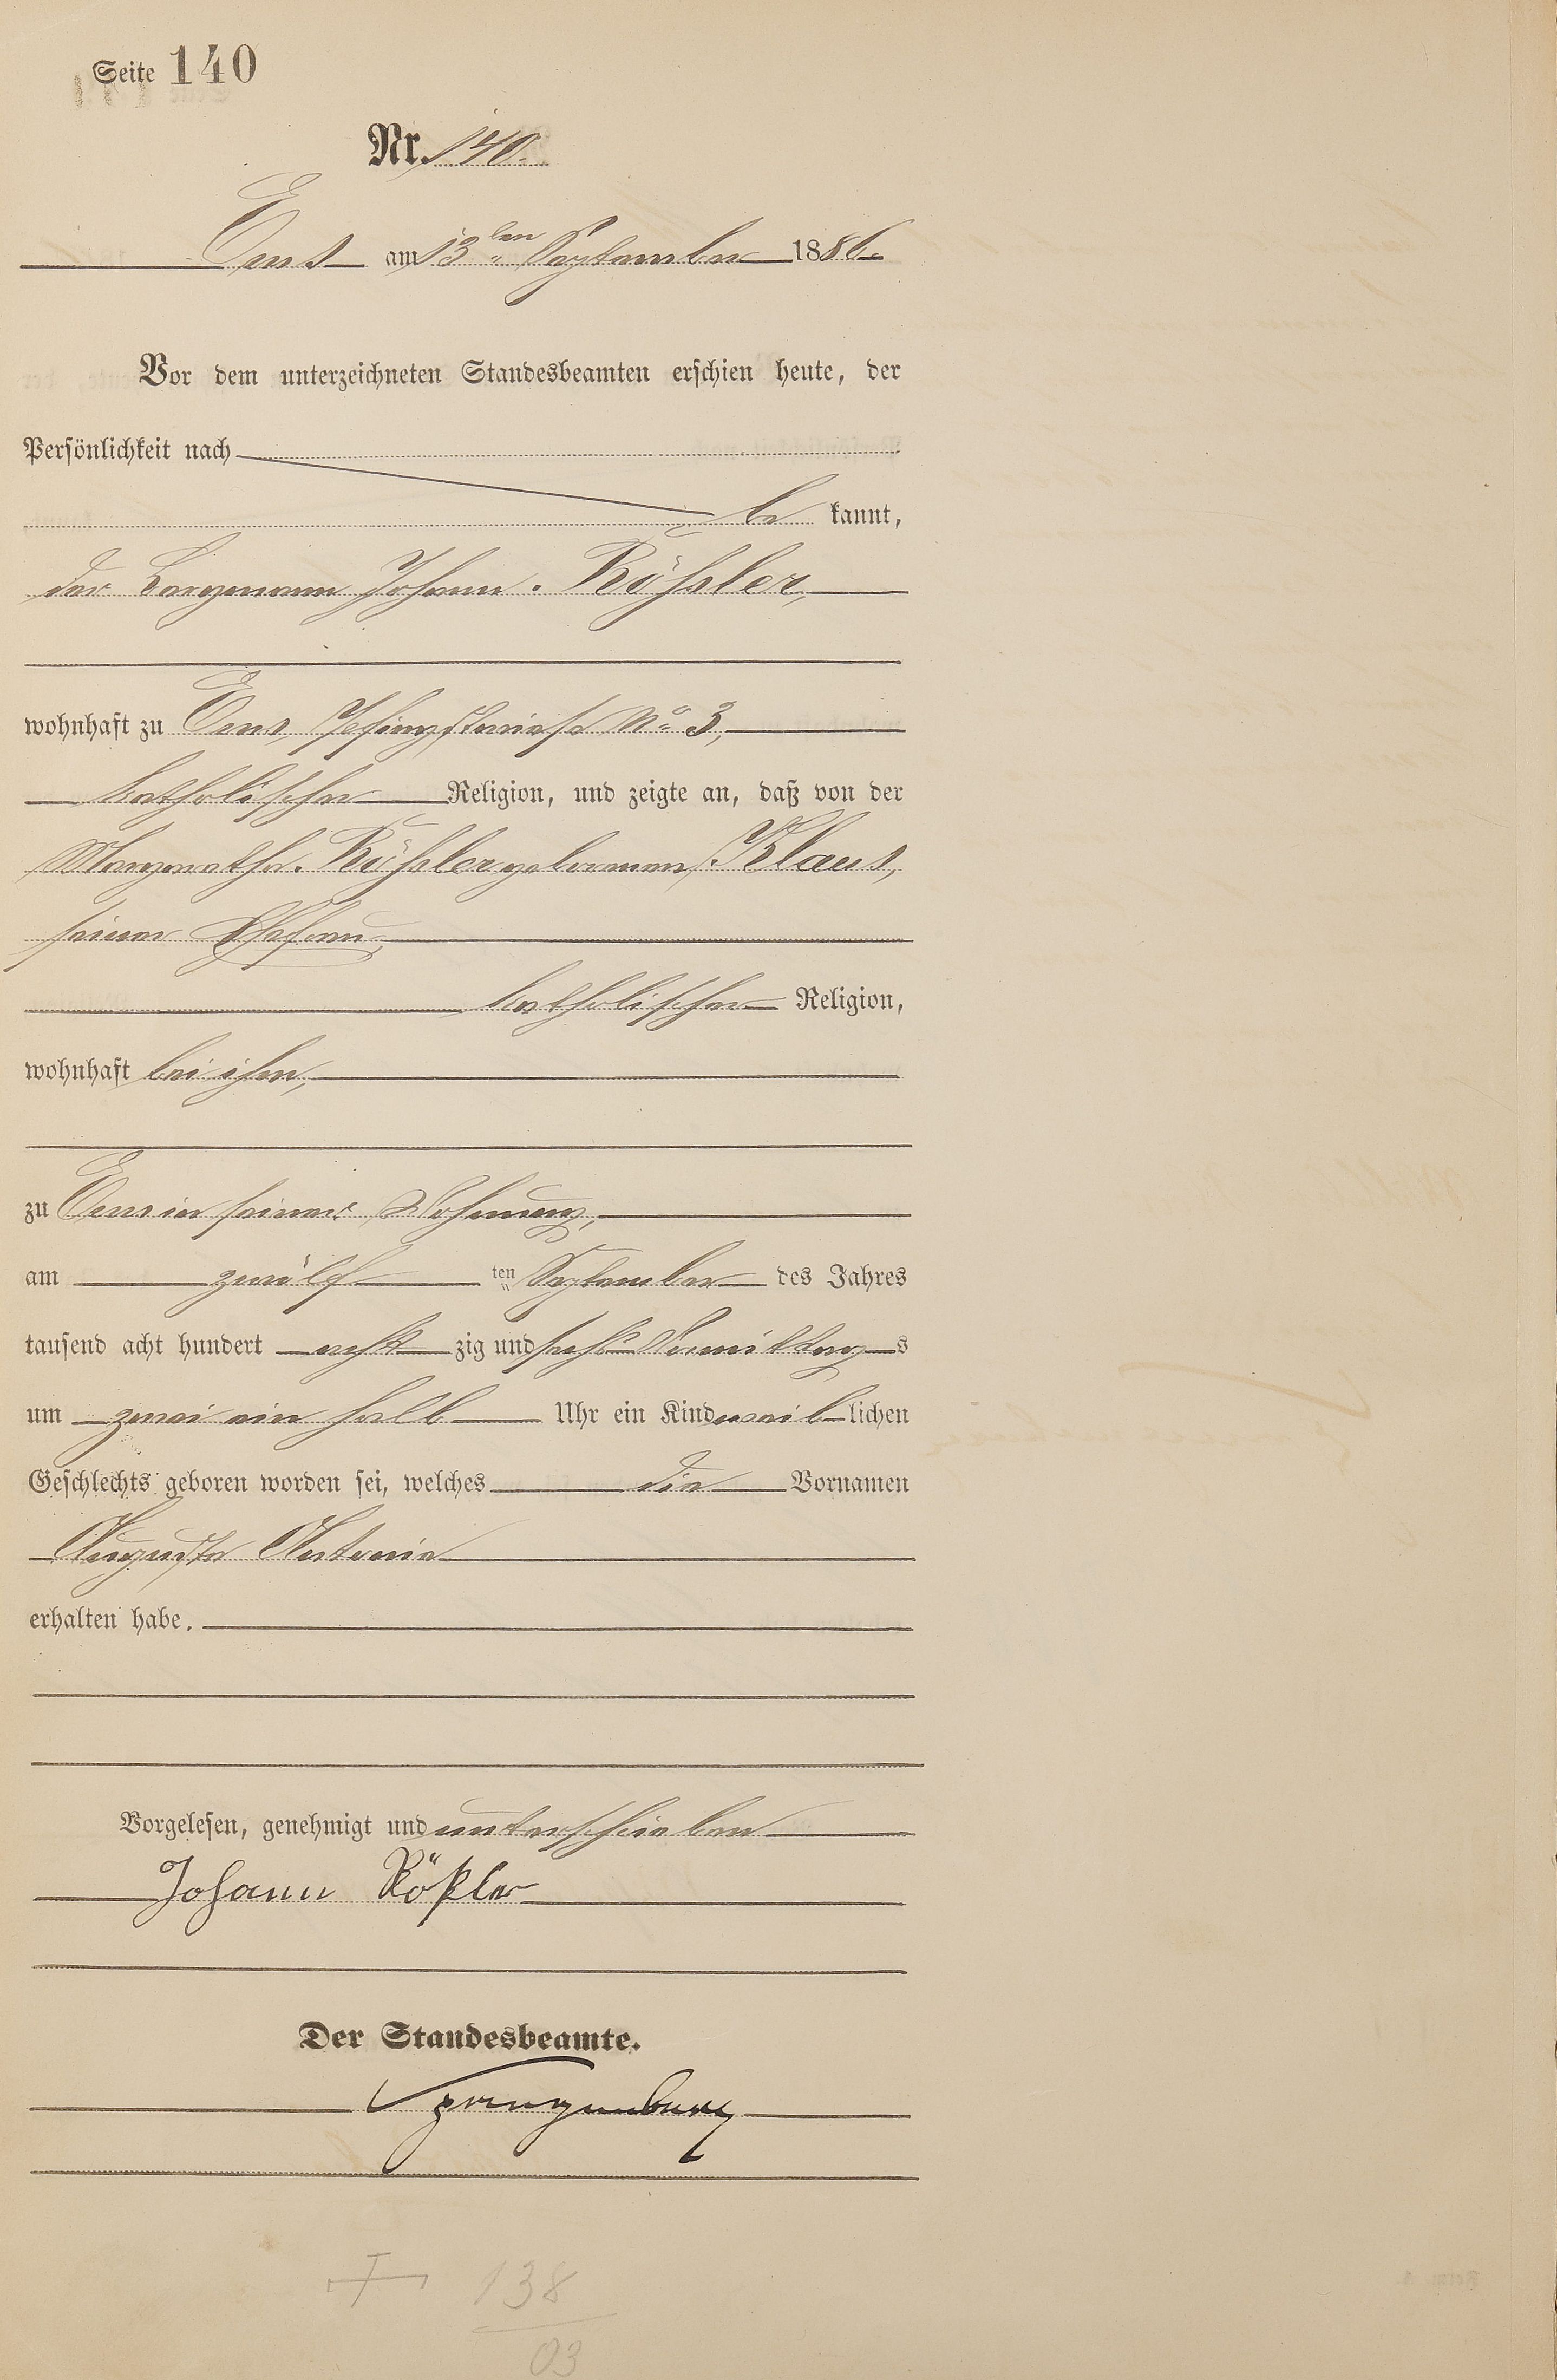 Seite 140
Nr. 140.
Ems am 13ten September 1886.
Vor dem unterzeichneten Standesbeamten erschien heute, der
Persönlichkeit nach
be kannt,
der Bergmann Johann Rößler,
wohnhaft zu Ems, Pfingstwiese No 3,
katholischer Religion, und zeigte an, daß von der
Margaretha Rößler geborenen Klaus,
seiner Ehefrau,
katholischer Religion,
wohnhaft bei ihm,
zu Ems in seiner Wohnung,
am zwölf ten September des Jahres
tausend acht hundert acht zig und sechs Vormittag s
um zwei ein halb Uhr ein Kind weib lichen
Geschlechts geboren worden sei, welches die Vornamen
Auguste Antonie
erhalten habe.
Vorgelesen, genehmigt und unterschrieben
Johann Rößler
Der Standesbeamte.
Spangenberg
138
03